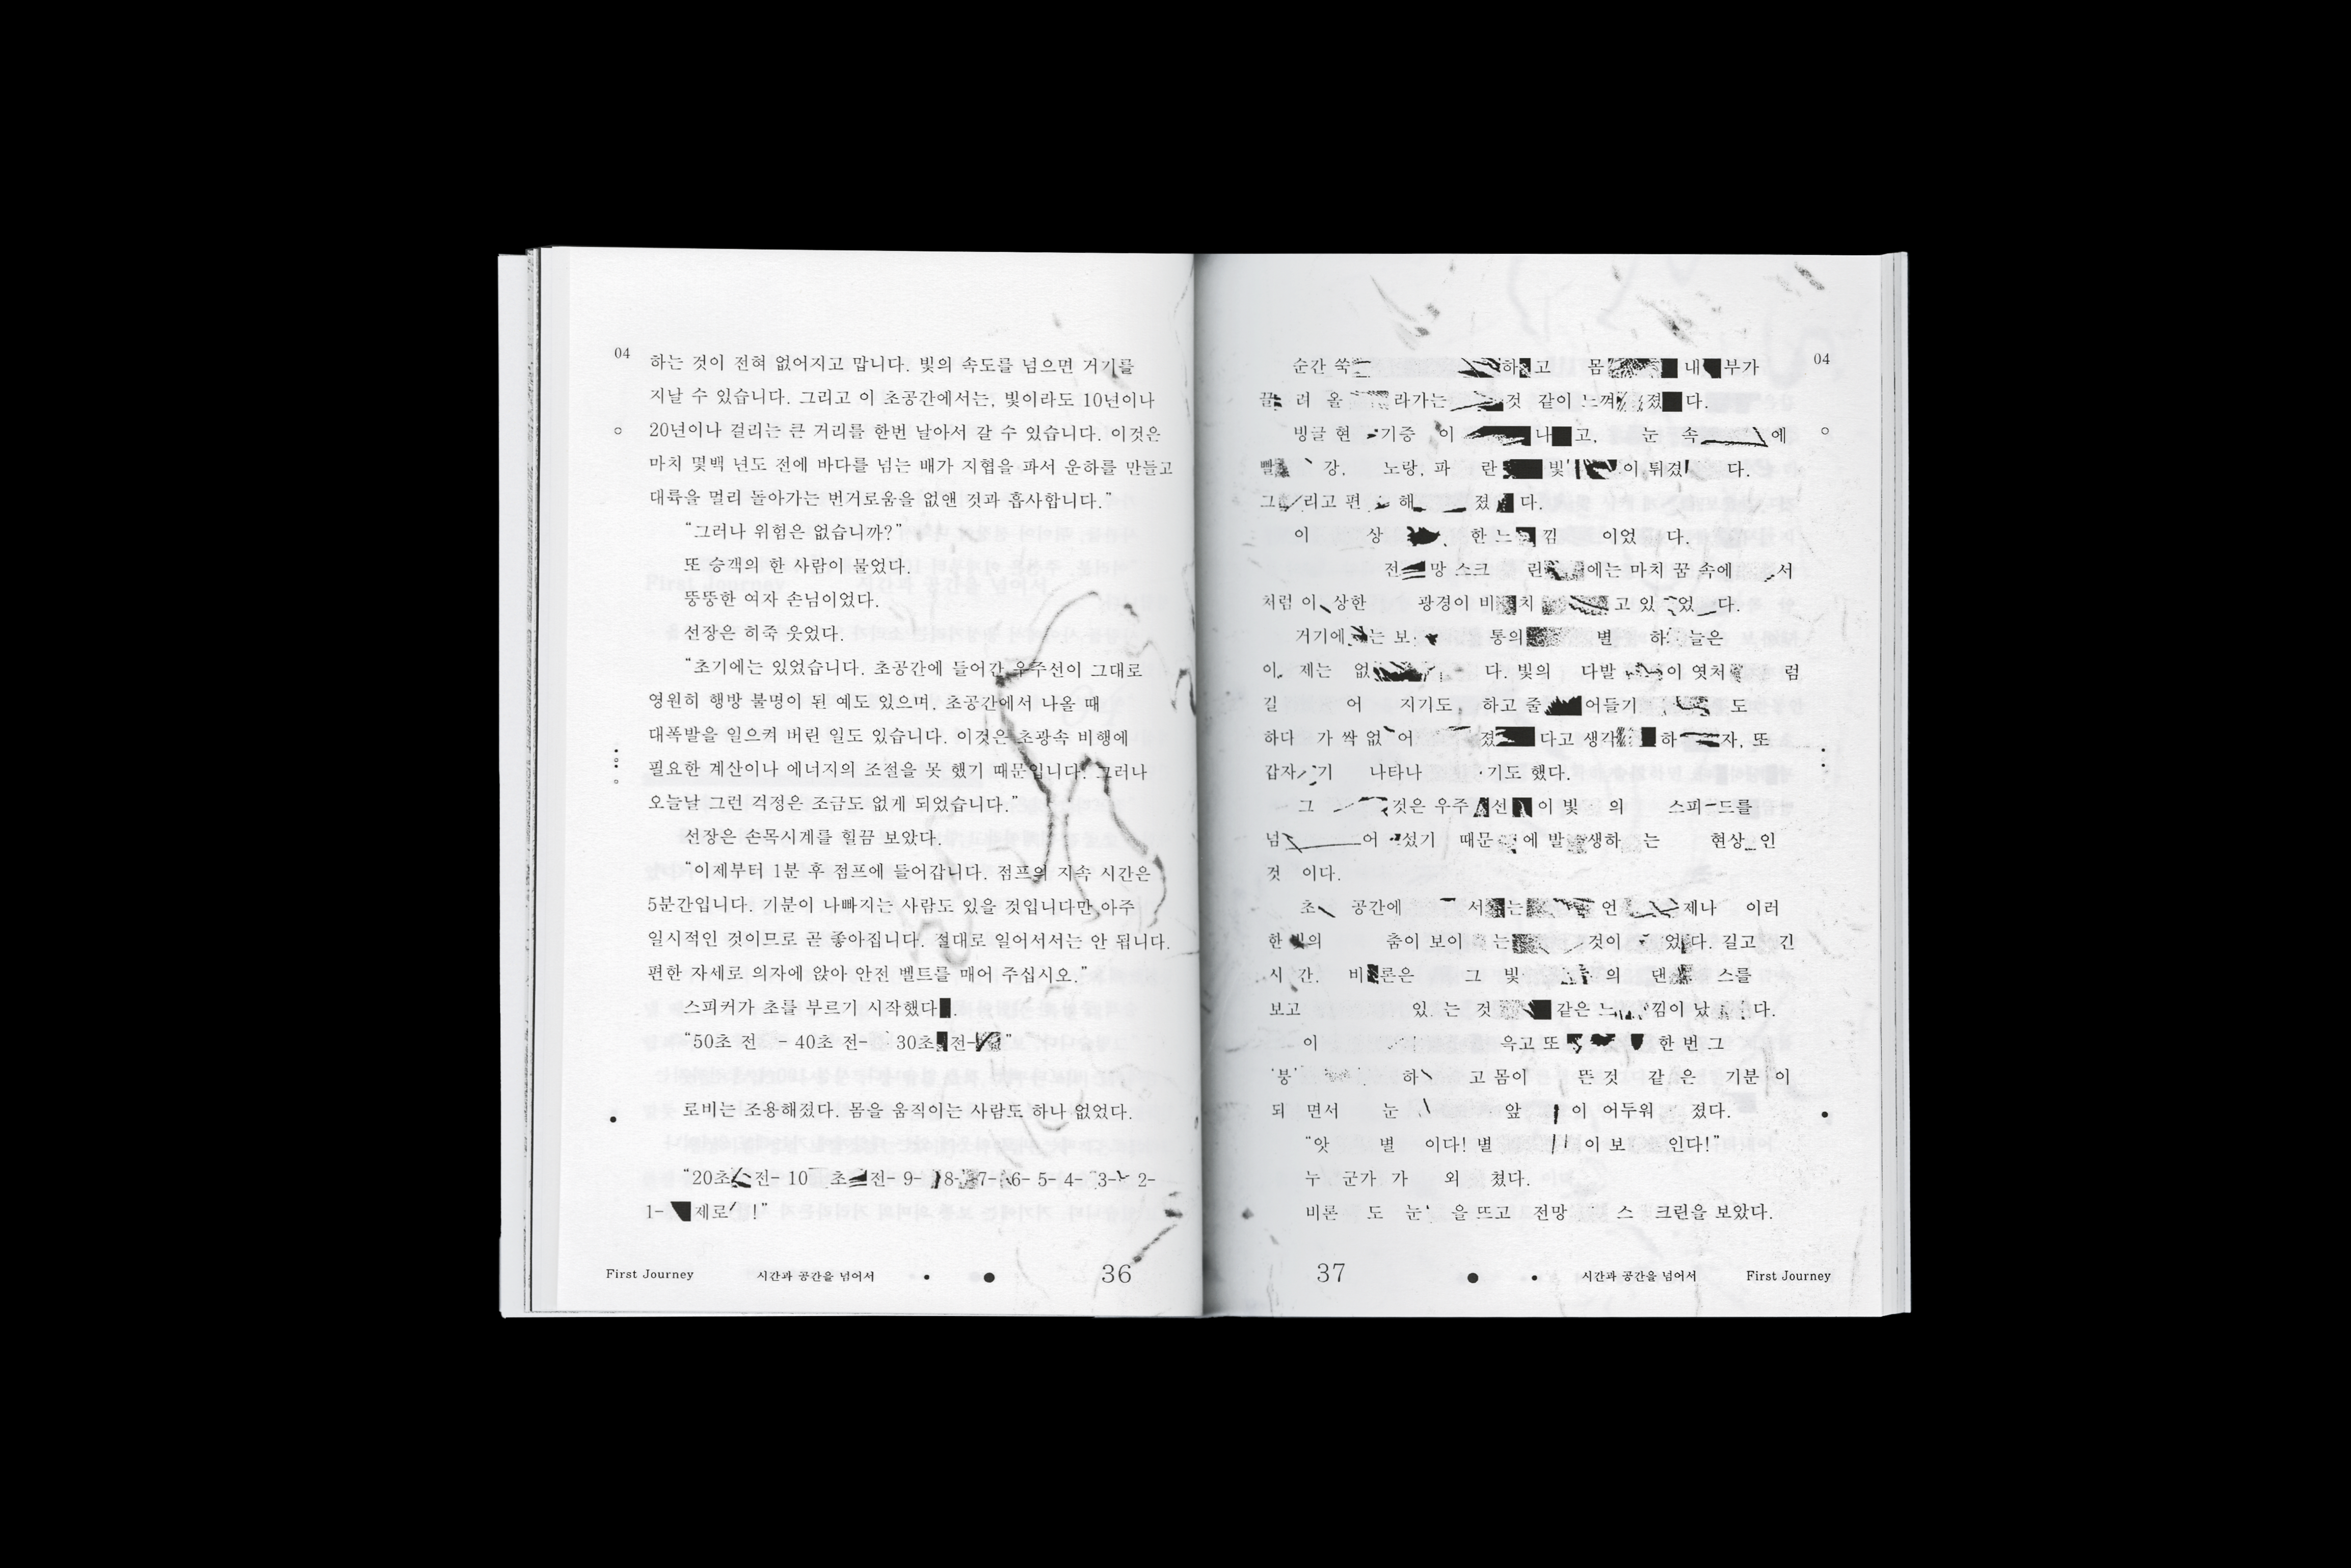 04
하는 것이 전혀 없어지고 맙니다. 빛의 속도를 넘으면 거기를
지날 수 있습니다. 그리고 이 초공간에서는, 빛이라도 10년이나
20년이나 걸리는 큰 거리를 한번 날아서 갈 수 있습니다. 이것은
마치 몇백 년도 전에 바다를 넘는 배가 지협을 파서 운하를 만들고
대륙을 멀리 돌아가는 번거로움을 없앤 것과 흡사합니다.”
“그러나 위험은 없습니까?”
또 승객의 한 사람이 물었다.
뚱뚱한 여자 손님이었다.
선장은 히죽 웃었다.
“초기에는 있었습니다. 초공간에 들어간 우주선이 그대로
영원히 행방 불명이 된 예도 있으며, 초공간에서 나올 때
대폭발을 일으켜 버린 일도 있습니다. 이것은 초광속 비행에
필요한 계산이나 에너지의 조절을 못 했기 때문입니다. 그러나
오늘날 그런 걱정은 조금도 없게 되었습니다.”
선장은 손목시계를 힐끔 보았다.
“이제부터 1분 후 점프에 들어갑니다. 점프의 지속 시간은
5분간입니다. 기분이 나빠지는 사람도 있을 것입니다만 아주
일시적인 것이므로 곧 좋아집니다. 절대로 일어서서는 안 됩니다.
편한 자세로 의자에 앉아 안전 벨트를 매어 주십시오.”
스피커가 초를 부르기 시작했다.
“50초 전 - 40초 전- 30초 전- ”
로비는 조용해졌다. 몸을 움직이는 사람도 하나 없었다.
“20초 전- 10 초 전- 9- 8- 7- 6- 5- 4- 3- 2-
1- 제로 !”
First Journey 시간과 공간을 넘어서 36
04
순간 쑥 하 고 몸 내 부가
끌 려 올 라가는 것 같이 느껴 졌 다.
빙글 현 기증 이 나 고, 눈 속 에
빨 강, 노랑, 파 란 빛 이 튀겼 다.
그 리고 편 해 졌 다.
이 상 한 느 낌 이었 다.
전 망 스크 린 에는 마치 꿈 속에 서
처럼 이 상한 광경이 비 치 고 있 었 다.
거기에 는 보 통의 별 하 늘은
이 제는 없 다. 빛의 다발 이 엿처 럼
길 어 지기도 하고 줄 어들기 도
하다 가 싹 없 어 졌 다고 생각 하 자, 또
갑자 기 나타나 기도 했다.
그 것은 우주 선 이 빛 의 스피 드를
넘 어 섰기 때문 에 발 생하 는 현상 인
것 이다.
초 공간에 서 는 언 제나 이러
한 빛의 춤이 보이 는 것이 었 다. 길고 긴
시 간, 비 론은 그 빛 의 댄 스를
보고 있 는 것 같은 느 낌이 났 다.
이 윽고 또 한 번 그
‘붕’ 하 고 몸이 뜬 것 같 은 기분 이
되 면서 눈 앞 이 어두워 졌다.
“앗 별 이다! 별 이 보 인다!”
누 군가 가 외 쳤다.
비론 도 눈 을 뜨고 전망 스 크린을 보았다.
37 시간과 공간을 넘어서 First Journey